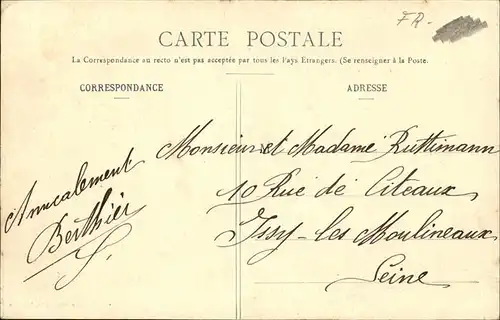 FR-
CARTE POSTALE
La Correspondance au recto n'est pas acceptée par tous les Pays Etrangers. (Se renseigner à la Poste.
CORRESPONDANCE
ADRESSE
Amicalement
Berthier
Monsieur et Madame Ruttimann
10 Rue de Citeaux
Issy-les Moulineaux
Seine